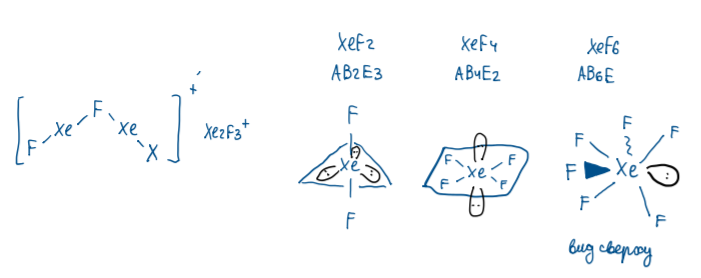 [F-Xe-F-Xe-X]+ Xe2F3+
XeF2
AB2E3
F
Xe
F
XeF4
AB4E2
F F
Xe
F F
XeF6
AB6E
F F F
F Xe
F F
вид сверху